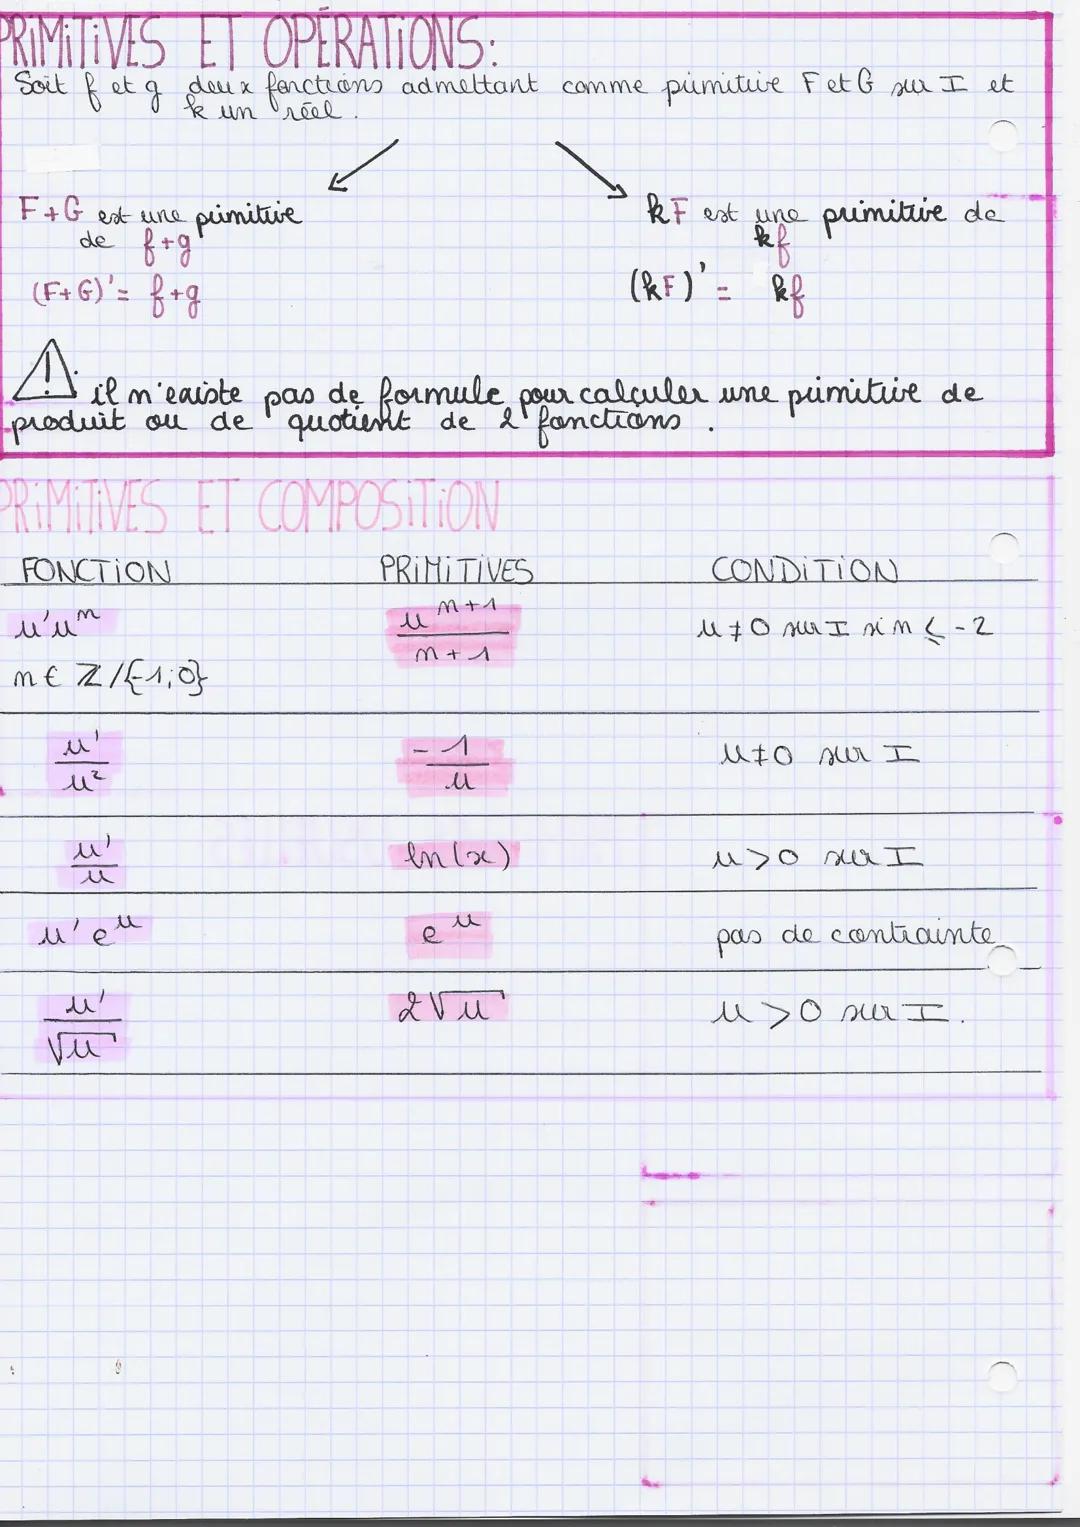 PRIMITIVES ET OPÉRATIONS:
Soit f et g deux fonctions admettant comme primitive F et G sur I et
k un réel.
F+G est une primitive
de f+g
(F+G)'= f+g
kF est une primitive de
kf
(kF)' = kf
⚠ il n'existe pas de formule pour calculer une primitive de
produit ou de quotient de 2 fonctions.
PRIMITIVES ET COMPOSITION
FONCTION PRIMITIVES CONDITION
u'uⁿ uⁿ⁺¹/n+1 u≠0 sur I si n ≤ -2
n ∈ ℤ/{-1;0}
u'/u² -1/u u≠0 sur I
u'/u ln(x) u>0 sur I
u'eᵘ eᵘ pas de contrainte
u'/√u 2√u u>0 sur I.